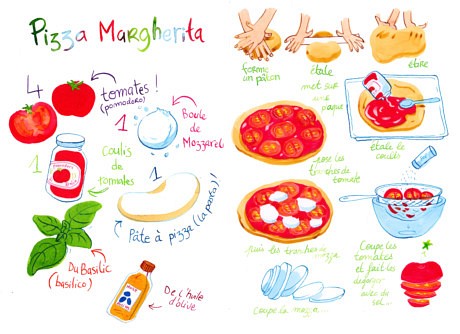 Pizza Margherita
4
tomates !
(pomodoro)
1
Boule
de
Mozzarel
1
Coulis
de
tomates
Pâte à pizza (la pasta) !
Du Basilic
(basilico)
De l'huile
d'olive
forme
un pâton
étale
étire
met sur
une
étale le
coulis
les
tranches de
tomate
puis les tranches de
Coupe les
tomates
et fait les
dégorger
avec du
sel...
Coupe la